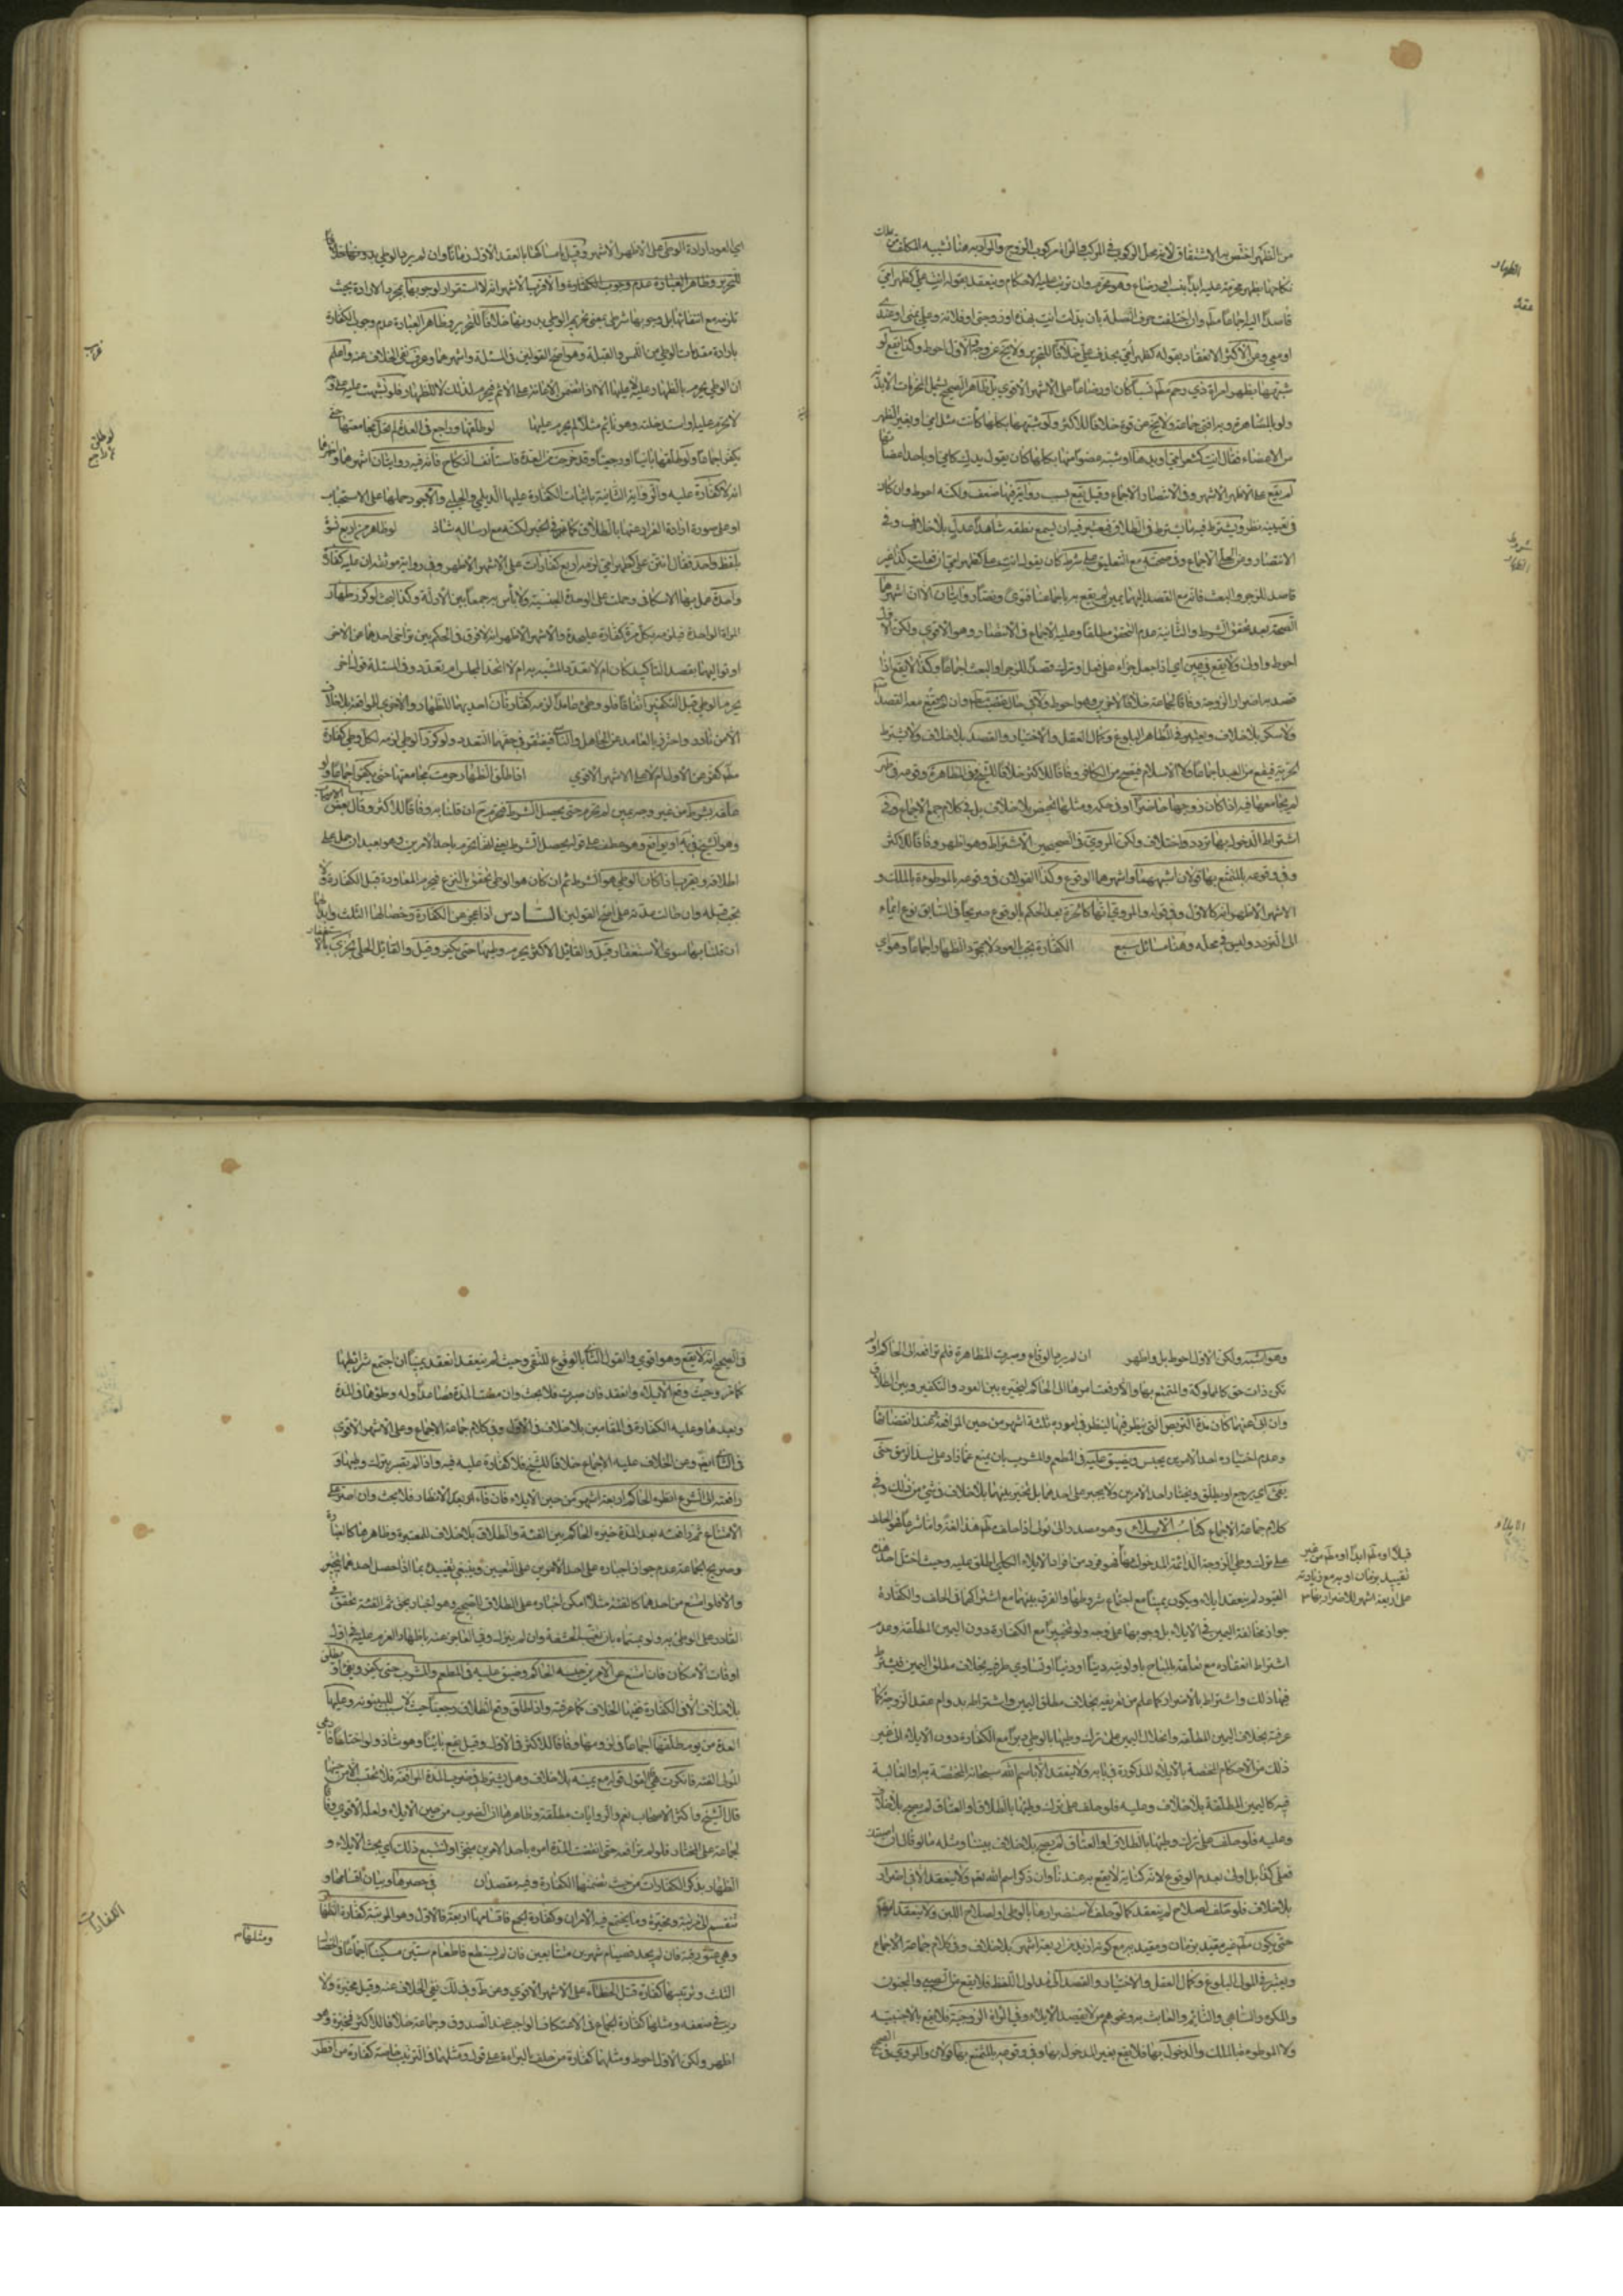 من الظهر اختص به الاشتقاق لانه محل الركوب في المركب والمراة مركوب الزوج والمراد به هنا تشبيه المكلف من ملك
نكاحها بظهر محرمة عليه ابدا بنسب او رضاع وهو محرم وان ترتب عليه الاحكام وينعقد بقوله انت علي كظهر امي
الظهار
عقد
قاصدا اليه اجماعا منا وان اختلفت حرف الصلة بان بدلت انت بهذه او زوجتي او فلانة وعلي بمني او عندي
او معي وعن الاكثر الانعقاد بقوله كظهر امي بحذف علي خلافا للتحرير ولا يخ عن وجه والاول احوط وكذا يقع لو
شبهها بظهر امراة ذي رحم نسبا كان او رضاعا على الاشهر الاقوى بل ظاهر الصحيح يشمل المحرمات الابدية
ولو بالمصاهرة وبه افتى جماعة ولا يخ عن قوة خلافا للاكثر ولو شبهها بكلها كانت مثل امي او بغير الظهر
من الاعضاء فقال انت كشعر امي او يدها او شبه عضوا منها بكلها كان يقول يدك كامي او باحد اعضائها
لم يقع على الاظهر الاشهر وفي الانتصار الاجماع وقيل يقع بسبب رواية فيها ضعف ولكنه احوط وان كان
في تعيينه نظر ويشترط فيه ما يشترط في الطلاق فيعتبر فيه ان يسمع نطقه شاهدا عدل بلا خلاف وفي
شروط
الظهار
الانتصار وعن الحلي الاجماع وفي صحته مع التعليق على شرط كان يقول انت علي كظهر امي ان فعلت كذا غير
قاصد للزجر والبعث فانه مع القصد اليهما يمين لم يقع به باجماعنا فتوى ونصا روايتان الا ان اشهرهما
الصحة بعد تحقق الشرط والثانية عدم التحقق مطلقا وعليه الاجماع في الانتصار وهو الاقوى ولكن الاول
احوط واولى ولا يقع في يمين اي اذا جعل جزاء على فعل او ترك قصدا للزجر او البعث اجماعا وكذا لا يقع اذا
قصد به اضرار الزوجة وفاقا لجماعة خلافا لاخرين وهو احوط ولا في حال غضب وان لم يرتفع معه القصد
ولا سكر بلا خلاف ويعتبر في المظاهر البلوغ وكمال العقل والاختيار والقصد بلا خلاف ولا يشترط
الحرية فيقع من العبد اجماعا ولا الاسلام فيصح من الكافر وفاقا للاكثر خلافا للشيخ وفي المظاهرة وقوعه في طهر
لم يجامعها فيه اذا كان زوجها حاضرا او في حكمه ومثلها تحيض بلا خلاف بل في كلام جمع الاجماع وفي
اشتراط الدخول بها تردد واختلاف ولكن المروي في الصحيحين الاشتراط وهو اظهر وفاقا للاكثر
وفي وقوعه بالمتمتع بها قولان اشبههما واشهرهما الوقوع وكذا القولان في وقوعه بالموطوءة بالملك و
الاشهر الاظهر انه كالاول في وقوعه والمروي انها كالحرة بعد الحكم بالوقوع صريحا في السابق نوع ايماء
الى التردد وليس في محله وهنا مسائل سبع الكفارة تجب بالعود لا بمجرد الظهار اجماعا وهو اي
اي العود ارادة الوطي على الاظهر الاشهر وقيل امساكها بالعقد الاول زمانا وان لم يرد الوطي
للتحرير وظاهر العبارة عدم وجوب الكفارة والاقرب الاشهر انه لا استقرار لوجوبها بمجرد الارادة بحيث
تلزمه مع انتفائها بل وجوبها شرطي بمعنى تحريم الوطي بدونها خلافا للتحرير وظاهر العبارة عدم وجوب الكفارة
بارادة مقدمات الوطي من اللمس والقبلة وهو اصح القولين في المسئلة واشهرهما وعن نفي الخلاف عنه واعلم
ان الوطي يحرم بالظهار عليه لا عليها الا اذا تضمن الاعانة على الاثم فيحرم لذلك لا للظهار فلو تشبهت عليه
لا يحرم عليها او استدخلته وهو نائم مثلا لم يحرم عليها لو طلقها وراجع في العدة لم تحل مجامعتها حتى
لو طلق
ثم راجع
يكفر اجماعا ولو طلقها باينا او رجعيا وقد خرجت من العدة فاستانف النكاح فانه فيه روايتان اشهرهما واظهرهما
انه لا كفارة عليه والرواية الثانية باثبات الكفارة عليها الديلمي والحلبي والاجود حملها على الاستحباب
او على صورة ارادة الفرار عنها بالطلاق كما مر في الخبر لكنه مع ارساله شاذ لو ظاهر من اربع نسوة
بلفظ واحد فقال انتن علي كظهر امي لزمه اربع كفارات على الاشهر الاظهر وفي رواية موثقة ان عليه كفارة
واحدة عمل بها الاسكافي وحملت على الوحدة الجنسية ولا باس به جمعا بين الادلة وكذا البحث لو كرر ظهار
المراة الواحدة فيلزمه بكل مرة كفارة على حدة والاشهر الاظهر انه لا فرق في الحكم بين تراخي احدهما عن الاخر
او تواليهما بقصد التاكيد كان ام لا تعدد المشبه به ام لا اتحد المجلس ام تعدد وفي المسئلة قول اخر
يحرم الوطي قبل التكفير اتفاقا فلو وطئ عامدا لزمه كفارتان احديهما للظهار والاخرى للمواقعة بلا خلاف
الا من نادر واحترز بالعامد عن الجاهل والناسي فينتفي في حقهما التعدد ولو كرر الوطي لزمه لكل وطي كفارة
كفر عن الاول ام لا على الاشهر الاقوى اذا اطلق الظهار حرمت مجامعتها حتى يكفر اجماعا ولو
علقه بشرط من غير وجه يمين لم تحرم حتى يحصل الشرط فتحرم ح ان قلنا به وفاقا للاكثر وقال بعض
وهو الشيخ في يه او يواقع وهو عطف على قوله يحصل الشرط
اطلاقه ويقرب اذا كان الوطي هو الشرط ثم ان كان هو الوطي تحقق بالنزع فيحرم المعاودة قبل الكفارة ولا
تجب قبله وان طالت مدته على اصح القولين السادس اذا عجز عن الكفارة وخصالها الثلث وابدالها
ان قلنا بها سوى الاستغفار قيل والقائل الاكثر يحرم وطيها حتى يكفر وقيل والقائل الحلي يجزي بالاستغفار
وهو اشبه ولكن الاول احوط بل واظهر ان لم يرد الوقاع وصبرت المظاهرة فلم ترافعه الى الحاكم او لم
تكن ذات حق كالمملوكة والمتمتع بها والا رفعت امرها الى الحاكم ليخيره بين العود والتكفير وبين الطلاق
وان ابى عنهما كان مدة التربص التي ينظر فيها لينظر في امره ثلثة اشهر من حين المرافعة فعند انقضائها
وعدم اختياره احد الامرين يحبس ويضيق عليه في المطعم والمشرب بان يمنع عما زاد على سد الرمق حتى
يفئ اي يرجع او يطلق ويختار احد الامرين ولا يجبر على احدهما بل تخير بينهما بلا خلاف في شئ من ذلك وفي
كلام جماعة الاجماع كتاب الايلاء وهو مصدر الى يولي اذا حلف هذا لغة واما شرعا فهو الحلف
الايلاء
على ترك وطي الزوجة الدائمة المدخول بها فهو فرد من افراد الايلاء الكلي اطلق عليه وحيث اختل احد هذه
قبلا او مط ابدا او مط من غير
تقييد بزمان او به مع زيادته
على اربعة اشهر للاضرار بها
القيود لم ينعقد ايلاء ويكون يمينا مع اجتماع شروطها والفرق بينهما مع اشتراكهما في الحلف والكفارة
جواز مخالفة اليمين في الايلاء بل وجوبها على وجه ولو تخييرا مع الكفارة دون اليمين المطلقة وعدم
اشتراط انعقاده مع تعلقه بالمباح باولويته دينا او دنيا او تساوي طرفيه بخلاف مطلق اليمين فيشترط
فيها ذلك واشتراطه بالاضرار كما علم من تعريفه بخلاف مطلق اليمين واشتراطه بدوام عقد الزوجة كما
عرفته بخلاف اليمين المطلقة وانحلال اليمين على ترك وطيها بالوطي دبرا مع الكفارة دون الايلاء الى غير
ذلك من الاحكام المختصة بالايلاء المذكورة في بابه ولا ينعقد الا باسم الله سبحانه المختصة به او الغالبة
فيه كاليمين المطلقة بلا خلاف وعليه فلو حلف على ترك وطيها بالطلاق او العتاق لم يصح بلا خلاف
وعليه فلو حلف على ترك وطيها بالطلاق او العتاق لم يصح بلا خلاف بيننا ومثله ما لو قال ان
فعلي كذا بل اولى بعدم الوقوع لانه كناية لا يقع به عندنا وان ذكر اسم الله تعم ولا ينعقد الا في اضرار
بلا خلاف فلو حلف لصلاح لم ينعقد كما لو حلف لاستضرارها بالوطي او لصلاح اللبن ولا ينعقد
حتى يكون غير مقيد بزمان ومقيد به مع كونه ازيد من اربعة اشهر بلا خلاف وفي كلام جماعة الاجماع
ويعتبر في المولي البلوغ وكمال العقل والاختيار والقصد الى مدلول اللفظ فلا يقع من الصبي والمجنون
والمكره والساهي والنائم والعابث به ونحوهم من لا يقصد الايلاء وفي المراة الزوجية فلا يقع بالاجنبية
ولا الموطوءة بالملك والدخول بها فلا يقع بغير المدخول بها وفي وقوعه بالمتمتع بها قولان والمروي في الصحيح
في الصحيح انه لا يقع وهو اقوى والقول الثاني بالوقوع للتقي وحيث لم ينعقد انعقد يمينا ان اجتمع شرائطها
كما مر وحيث وقع الايلاء وانعقد فان صبرت فلا بحث وان مضت المدة فصاعدا وله وطؤها في المدة
وبعدها وعليه الكفارة في المقامين بلا خلاف في الاول وفي كلام جماعة الاجماع وعلى الاشهر الاقوى
في الثاني ايضا وعن الخلاف عليه الاجماع خلافا للشيخ فلا كفارة عليه فيه واذا لم تصبر بترك وطيها و
رافعته الى الشرع انظره الحاكم اربعة اشهر من حين الايلاء فان فاء بعد الانظار فلا بحث وان اصر على
الامتناع ثم رافعته بعد المدة خيره الحاكم بين الفئة والطلاق بلا خلاف للمعتبرة وظاهرها كالعبارة
وصريح جماعة عدم جواز اجباره على احد الامرين على التعيين وينبغي تقييده بما اذا حصل احدهما بالتخيير
والا فلو امتنع من احدهما كالفئة مثلا امكن اجباره على الطلاق للصحيح وهو اجبار بحق ثم الفئة تحقق في
القادر على الوطي به ولو بمسماه بان تغيب الحشفة وان لم ينزل وفي العاجز عنه باظهار العزم عليه في اول
اوقات الامكان فان امتنع عن الامرين حبسه الحاكم وضيق عليه في المطعم والمشرب حتى يكفر ويفئ او يطلق
بلا خلاف الا في الكفارة ففيها الخلاف كما عرفته واذا طلق وقع الطلاق رجعيا حيث لا سبب للبينونة وعليها
العدة من يوم طلقها اجماعا في لزومها وفاقا للاكثر في الاول وقيل يقع باينا وهو شاذ ولو اختلفا فادعى
المولي الفئة فانكرت هي فالقول قوله مع يمينه بلا خلاف وهل يشترط في ضرب المدة المرافعة فلا تحتسب الا من حينها
قال الشيخ واكثر الاصحاب نعم والروايات مطلقة وظاهرها ان الضرب من حين الايلاء ولعله الاقوى وفاقا
لجماعة على المختار فلو لم ترافعه حتى انقضت المدة امره باحد الامرين منجزا ولنتبع ذلك اي بحث الايلاء و
الظهار بذكر الكفارات من حيث تضمنهما الكفارة وفيه مقصدان في حصرها وبيان اقسامها و
الكفارات
تنقسم الى مرتبة ومخيرة وما يجتمع فيه الامران وكفارة الجمع فاقسامها اربعة فالاول وهو المرتبة كفارة الظهار
ومثلها
وهي عتق رقبة فان لم يجد فصيام شهرين متتابعين فان لم يستطع فاطعام ستين مسكينا اجماعا في الخصال
الثلث وترتيبها كفارة قتل الخطاء على الاشهر الاقوى وعن ط وفي لك نفي الخلاف عنه وقيل مخيرة ولا
ريب في ضعفه ومثلها كفارة الجماع في الاعتكاف الواجب عند الصدوق وجماعة خلافا للاكثر فمخيرة وهو
اظهر ولكن الاول احوط ومثلها كفارة من حلف بالبراءة على قول ومثلها في الترتيب خاصة كفارة من افطر